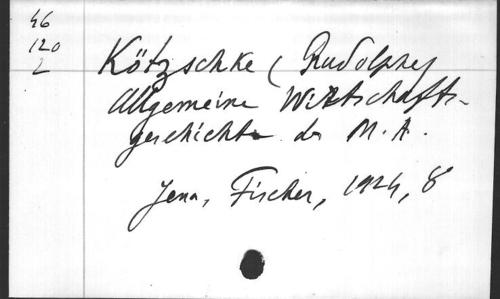 46
120
2
Kötzschke (Rudolphe)
Allgemeine Wirtschafts-
geschichte des M. A.
Jena, Fischer, 1924, 8°